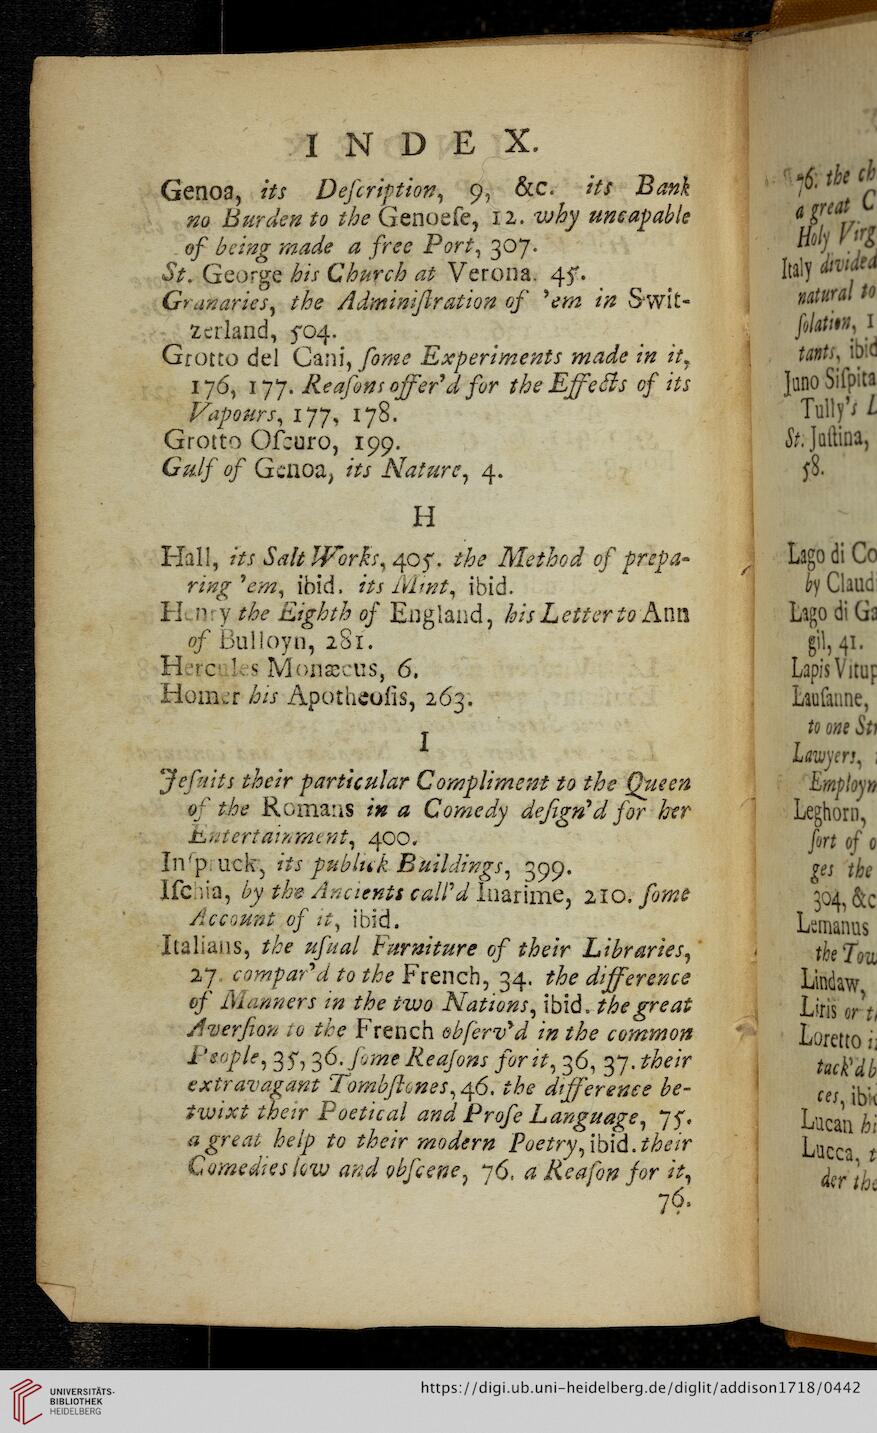 INDEX.
Genoa, its Deſcription, 9, &c. its Bank
no Burden to the Genoeſe, 12. why uncapable
of being made a free Port, 307.
St. George his Church at Verona. 45.
Granaries, the Adminiſtration of 'em in Swit-
zerland, 504.
Grotto del Cani, ſome Experiments made in it,
176, 177. Reaſons offer'd for the Effects of its
Vapours, 177, 178.
Grotto Oſcuro, 199.
Gulf of Genoa, its Nature, 4.
H
Hall, its Salt Works, 405. the Method of prepa-
ring 'em, ibid. its Mint, ibid.
Henry the Eighth of England, his Letter to Ann
of Bulloyn, 281.
Hercules Monæcus, 6.
Homer his Apotheoſis, 263.
I
Jeſuits their particular Compliment to the Queen
of the Romans in a Comedy deſign'd for her
Entertainment, 400.
Inſpruck, its publick Buildings, 399.
Iſchia, by the Ancients call'd Inarime, 210. ſome
Account of it, ibid.
Italians, the uſual Furniture of their Libraries,
27. compar'd to the French, 34. the difference
of Manners in the two Nations, ibid. the great
Averſion to the French obſerv'd in the common
People, 35, 36. ſome Reaſons for it, 36, 37. their
extravagant Tombſtones, 46. the difference be-
twixt their Poetical and Proſe Language, 75.
a great help to their modern Poetry, ibid. their
Comedies low and obſcene, 76. a Reaſon for it,
76.
76. the ch
a great C
Holy Virg
Italy divided
natural to
ſolation, 1
tants, ibid
Juno Siſpita
Tully's L
St. Juſtina,
58.
Lago di Co
by Claud
Lago di Ga
gil, 41.
Lapis Vitup
Lauſanne,
to one Str
Lawyers,
Employm
Leghorn,
ſort of o
ges the
304, &c
Lemanus
the Tow
Lindaw,
Liris or t
Loretto i
tack'd b
ces, ibi
Lucan hi
Lucca, t
der the
UNIVERSITÄTS-
BIBLIOTHEK
HEIDELBERG
https://digi.ub.uni-heidelberg.de/diglit/addison1718/0442